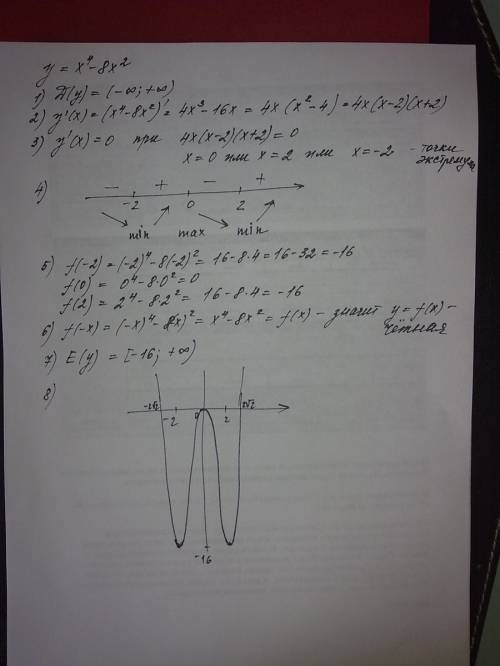 y = x⁴ - 8x²
1) D(y) = (-∞; +∞)
2) y'(x) = (x⁴ - 8x²)' = 4x³ - 16x = 4x (x² - 4) = 4x(x-2)(x+2)
3) y'(x) = 0 при 4x(x-2)(x+2) = 0
x = 0 или x = 2 или x = -2 - точки экстремума
4) - + - +
-2 0 2
min max min
5) f(-2) = (-2)⁴ - 8(-2)² = 16 - 8·4 = 16 - 32 = -16
f(0) = 0⁴ - 8·0² = 0
f(2) = 2⁴ - 8·2² = 16 - 8·4 = -16
6) f(-x) = (-x)⁴ - 8(x)² = x⁴ - 8x² = f(x) - значит y = f(x) - чётная
7) E(y) = [-16; +∞)
8)
-2√2 -2 0 2 2√2
-16